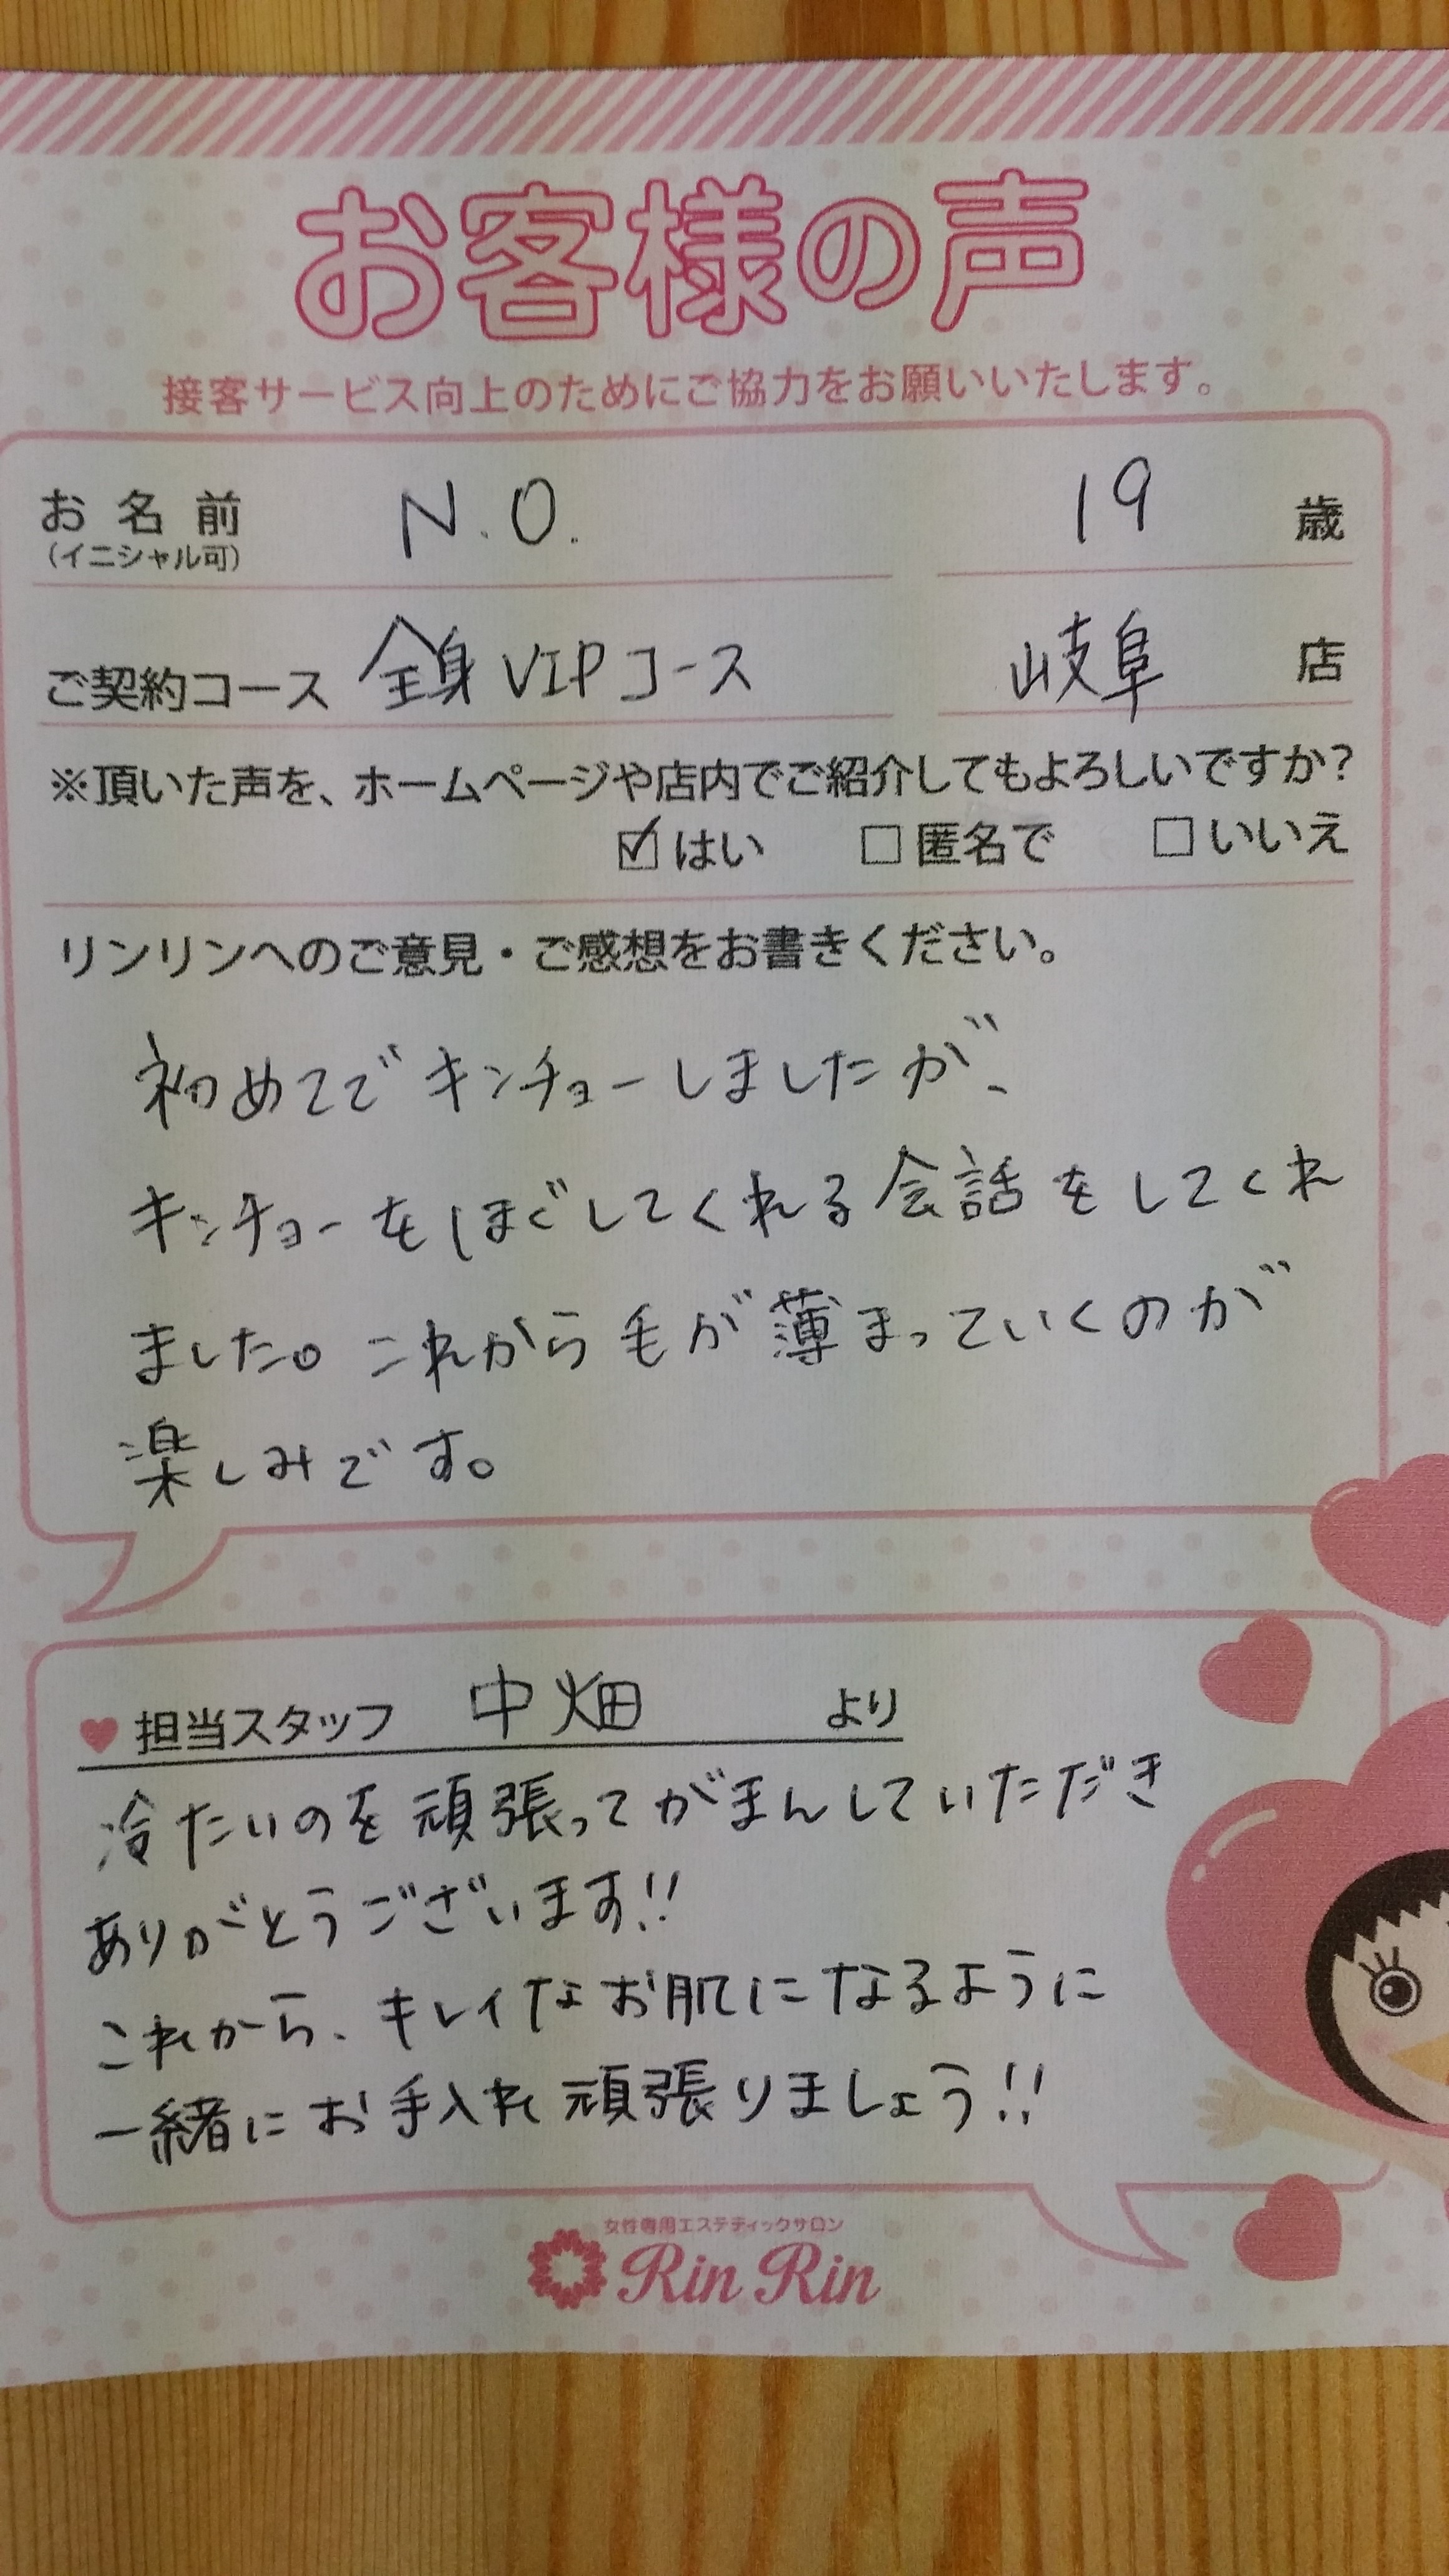 お客様の声
接客サービス向上のためにご協力をお願いいたします。
お名前 N.O. 19 歳
（イニシャル可）
ご契約コース 全身VIPコース 岐阜 店
※頂いた声を、ホームページや店内でご紹介してもよろしいですか？
☑はい □匿名で □いいえ
リンリンへのご意見・ご感想をお書きください。
初めてでキンチョーしましたが、
キンチョーをほぐしてくれる会話をしてくれ
ました。これから毛が薄まっていくのが
楽しみです。
♥担当スタッフ 中畑 より
冷たいのを頑張ってがまんしていただき
ありがとうございます!!
これから、キレイなお肌になるように
一緒にお手入れ頑張りましょう!!
女性専用エステティックサロン
Rin Rin